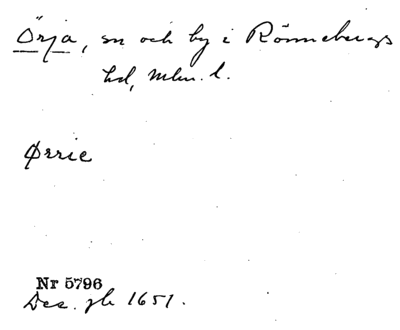 Örja, sn och by i Rönnebergs
hd, Mlm. l.
Ørrie
Nr 5796
Dec. jb 1651.